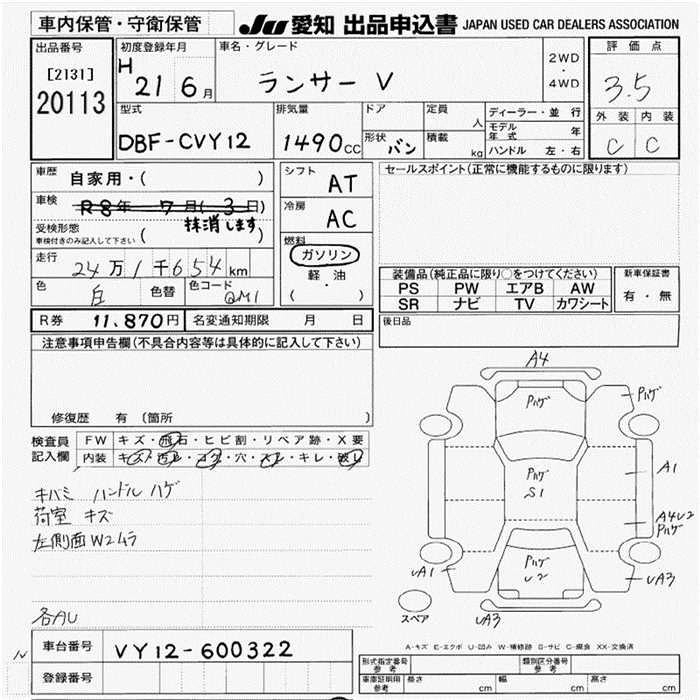 車内保管・守衛保管 JU 愛知 出品申込書 JAPAN USED CAR DEALERS ASSOCIATION
出品番号 初度登録年月 車名・グレード 2WD・4WD 評価点
[2131] H 21 6月 ランサー V 3.5
20113
型式 排気量 ドア 定員 人 ディーラー・並行 外装 内装
DBF-CVY12 1490cc 形状 バン 積載 kg モデル年式 年 C C
ハンドル 左・右
車歴 自家用・( ) シフト AT セールスポイント(正常に機能するものに限ります)
車検 R8年 7月(3日) 冷房 AC
受検形態 車検付きのみ記入して下さい ( 抹消します )
燃料 ガソリン 軽油 ( )
走行 24万1千654km
色 白 色替 色コード QM1
装備品(純正品に限り○をつけてください) 新車保証書
PS PW エアB AW 有・無
SR ナビ TV カワシート
R券 11,870円 名変通知期限 月 日 後日品
注意事項申告欄(不具合内容等は具体的に記入して下さい)
修復歴 有 〔箇所 〕
検査員記入欄 FW キズ・飛石・ヒビ割・リペア跡・X要
内装 キズ・汚レ・コゲ・穴・スレ・キレ・破レ
キバミ ハンドル ハゲ
荷室 キズ
左側面 W2ムラ
各AU
A4
Pハゲ Pハゲ
Pハゲ S1 A1
A4U2 Pハゲ
Pハゲ U2
UA1 UA3
スペア UA3
A-キズ E-エクボ U-凹み W-補修跡 S-サビ C-腐食 XX-交換済
車台番号 VY12-600322
登録番号
形式指定番号 参考 類別区分番号 参考
車庫証明用 参考 長さ cm 幅 cm 高さ cm